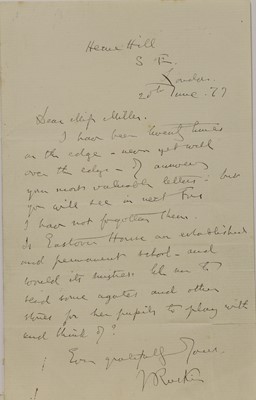 Herne Hill
S E.
London.
20th June. 77
Dear Miss Miller.
I have been twenty times
on the edge - never yet well
over the edge - of answering
your most valuable letters - but
you will see in next Fors
I have not forgotten them.
Is Eastover House an established
and permanent school - and
would its mistress like me to
send some agates and other
stones for her pupils to play with
and think of?
Ever gratefully Yours.
J Ruskin